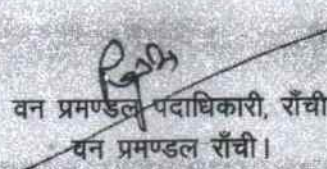 वन प्रमण्डल पदाधिकारी, राँची
वन प्रमण्डल राँची।